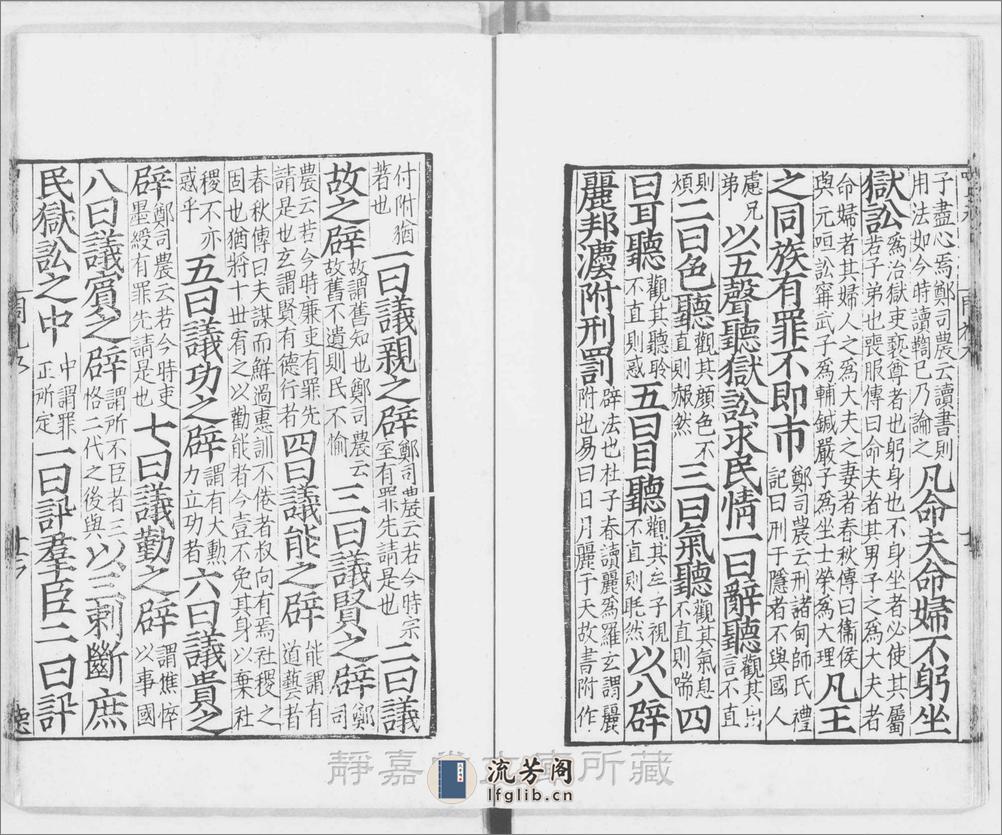 子盡心焉鄭司農云讀書則用法如今時讀鞫已乃論之凡命夫命婦不躬坐
獄訟爲治獄吏褻尊者也躬身也不身坐者必使其屬若子弟也喪服傳曰命夫者其男子之爲大夫者
命婦者其婦人之爲大夫之妻者春秋傳曰衞侯與元咺訟甯武子爲輔鍼嚴子爲坐士榮爲大理凡王
之同族有罪不即市鄭司農云刑諸甸師氏禮記曰刑于隱者不與國人
慮兄弟以五聲聽獄訟求民情一曰辭聽觀其出言不直
則煩二曰色聽觀其顔色不直則赧然三曰氣聽觀其氣息不直則喘四
曰耳聽觀其聽聆不直則惑五曰目聽觀其牟子視不直則眊然以八辟
麗邦灋附刑罰辟法也杜子春讀麗爲羅玄謂麗附也易曰日月麗于天故書附作
付附猶著也一曰議親之辟鄭司農云若今時宗室有罪先請是也二曰議
故之辟故謂舊知也鄭司農云故舊不遺則民不偷三曰議賢之辟鄭司
農云若今時廉吏有罪先請是也玄謂賢有德行者四曰議能之辟能謂有道藝者
春秋傳曰夫謀而鮮過惠訓不倦者叔向有焉社稷之固也猶將十世宥之以勸能者今壹不免其身以棄社
稷不亦惑乎五曰議功之辟謂有大勲力立功者六曰議貴之
辟鄭司農云若今時吏墨綬有罪先請是也七曰議勤之辟謂憔悴以事國
八曰議賓之辟謂所不臣者三恪二代之後與以三刺斷庶
民獄訟之中中謂罪正所定一曰訊羣臣二曰訊
靜嘉堂文庫所藏
流芳阁
lfglib.cn